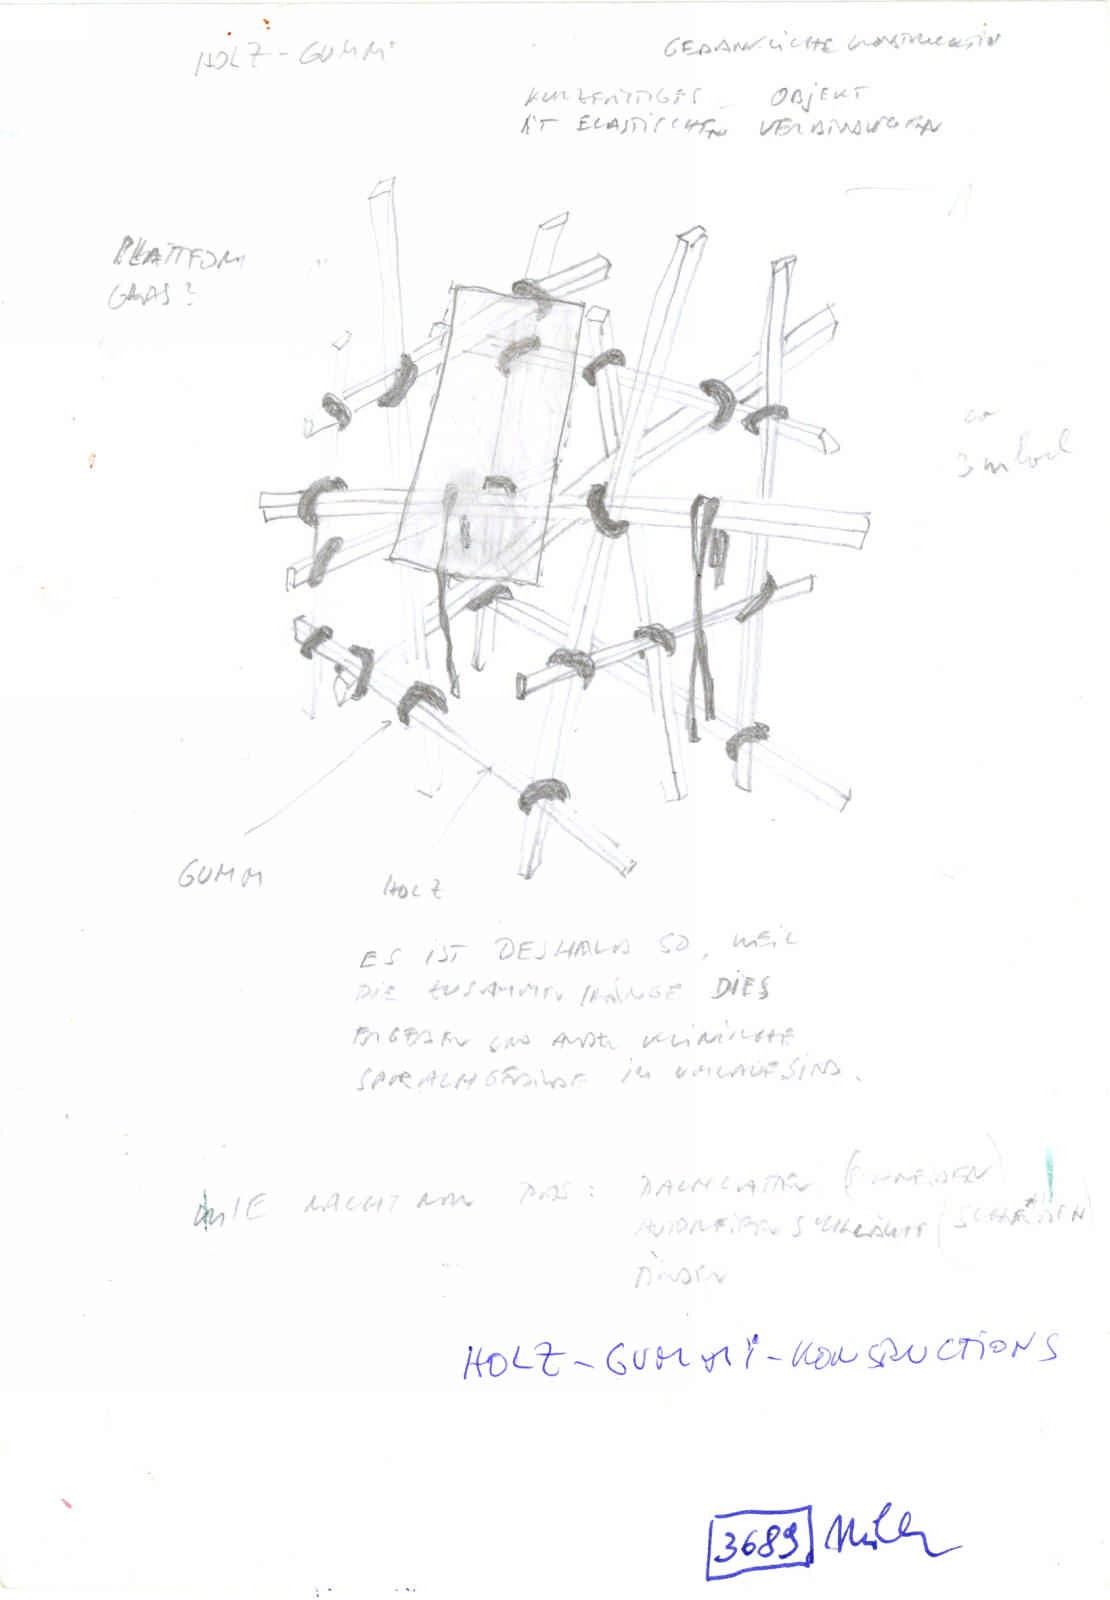 HOLZ - GUMMI
GEDANKLICHE KONSTRUKTION
KURZFRISTIGES OBJEKT
MIT ELASTISCHEN VERBINDUNGEN
PLATTFORM
GLAS?
ca
3 m hoch
GUMMI
HOLZ
ES IST DESHALB SO, WEIL
DIE ZUSAMMENHÄNGE DIES
ERGEBEN UND AUCH
IM UMLAUF SIND.
WIE MACHT MAN DAS: DACHLATTEN (SCHNEIDEN)
AUTOREIFEN SCHLÄUCHE (SCHNEIDEN)
BINDEN
HOLZ - GUMMI - KONSTRUCTIONS
3689